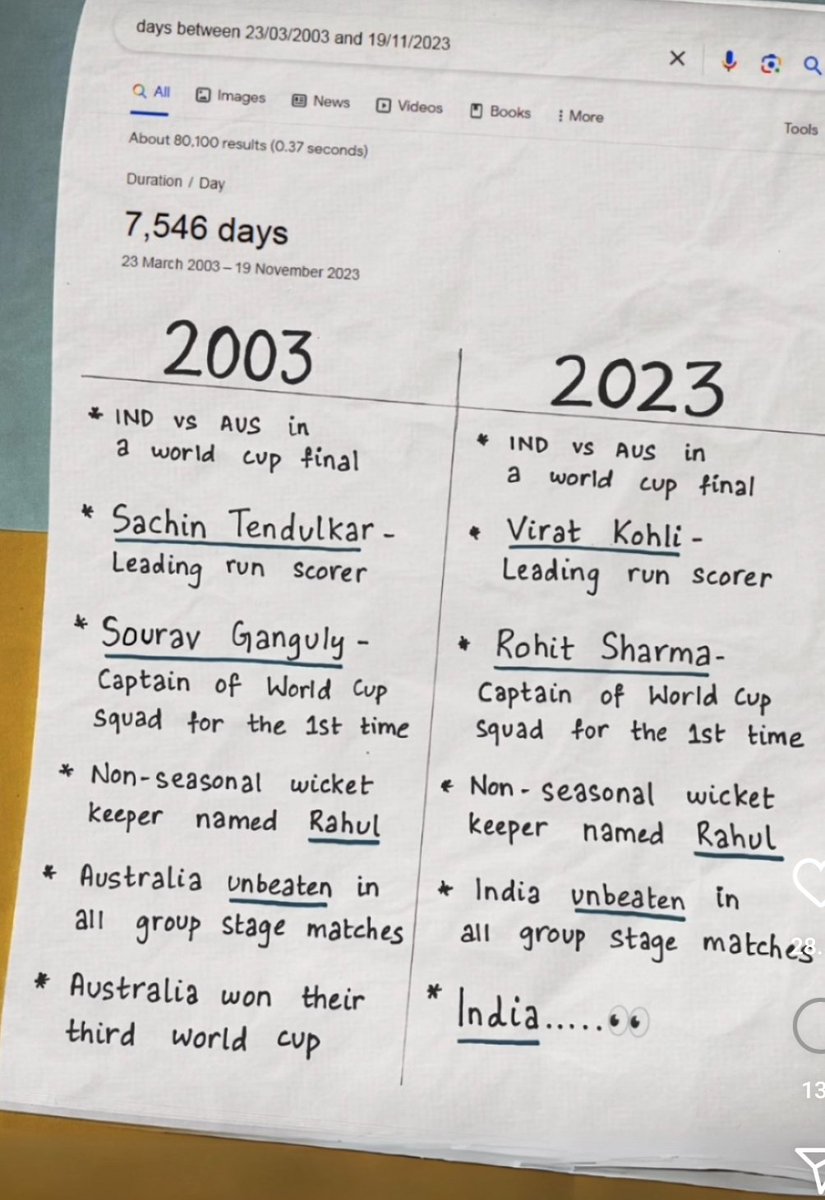 days between 23/03/2003 and 19/11/2023
All Images News Videos Books More
Tools
About 80,100 results (0.37 seconds)
Duration / Day
7,546 days
23 March 2003 – 19 November 2023
2003
* IND vs AUS in
a world cup final
* Sachin Tendulkar -
Leading run scorer
* Sourav Ganguly -
Captain of World Cup
squad for the 1st time
* Non-seasonal wicket
keeper named Rahul
* Australia unbeaten in
all group stage matches
* Australia won their
third world cup
2023
* IND vs AUS in
a world cup final
* Virat Kohli -
Leading run scorer
* Rohit Sharma-
Captain of World Cup
squad for the 1st time
* Non - seasonal wicket
keeper named Rahul
* India unbeaten in
all group stage matches
* India.....👀